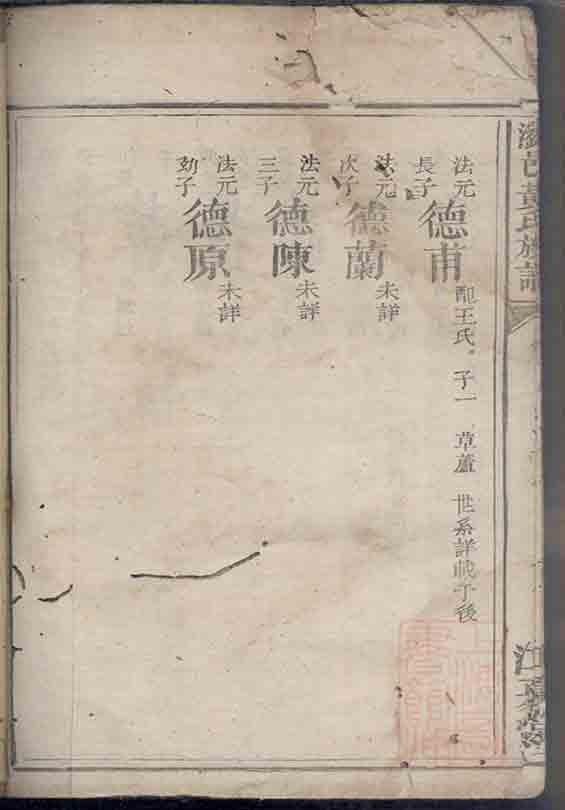 法元
長子
德甫
配王氏。子一 草蘆 世系詳載于後
法元
次子
德蘭
未詳
法元
三子
德陳
未詳
法元
幼子
德原
未詳
邑黃氏族譜
江夏